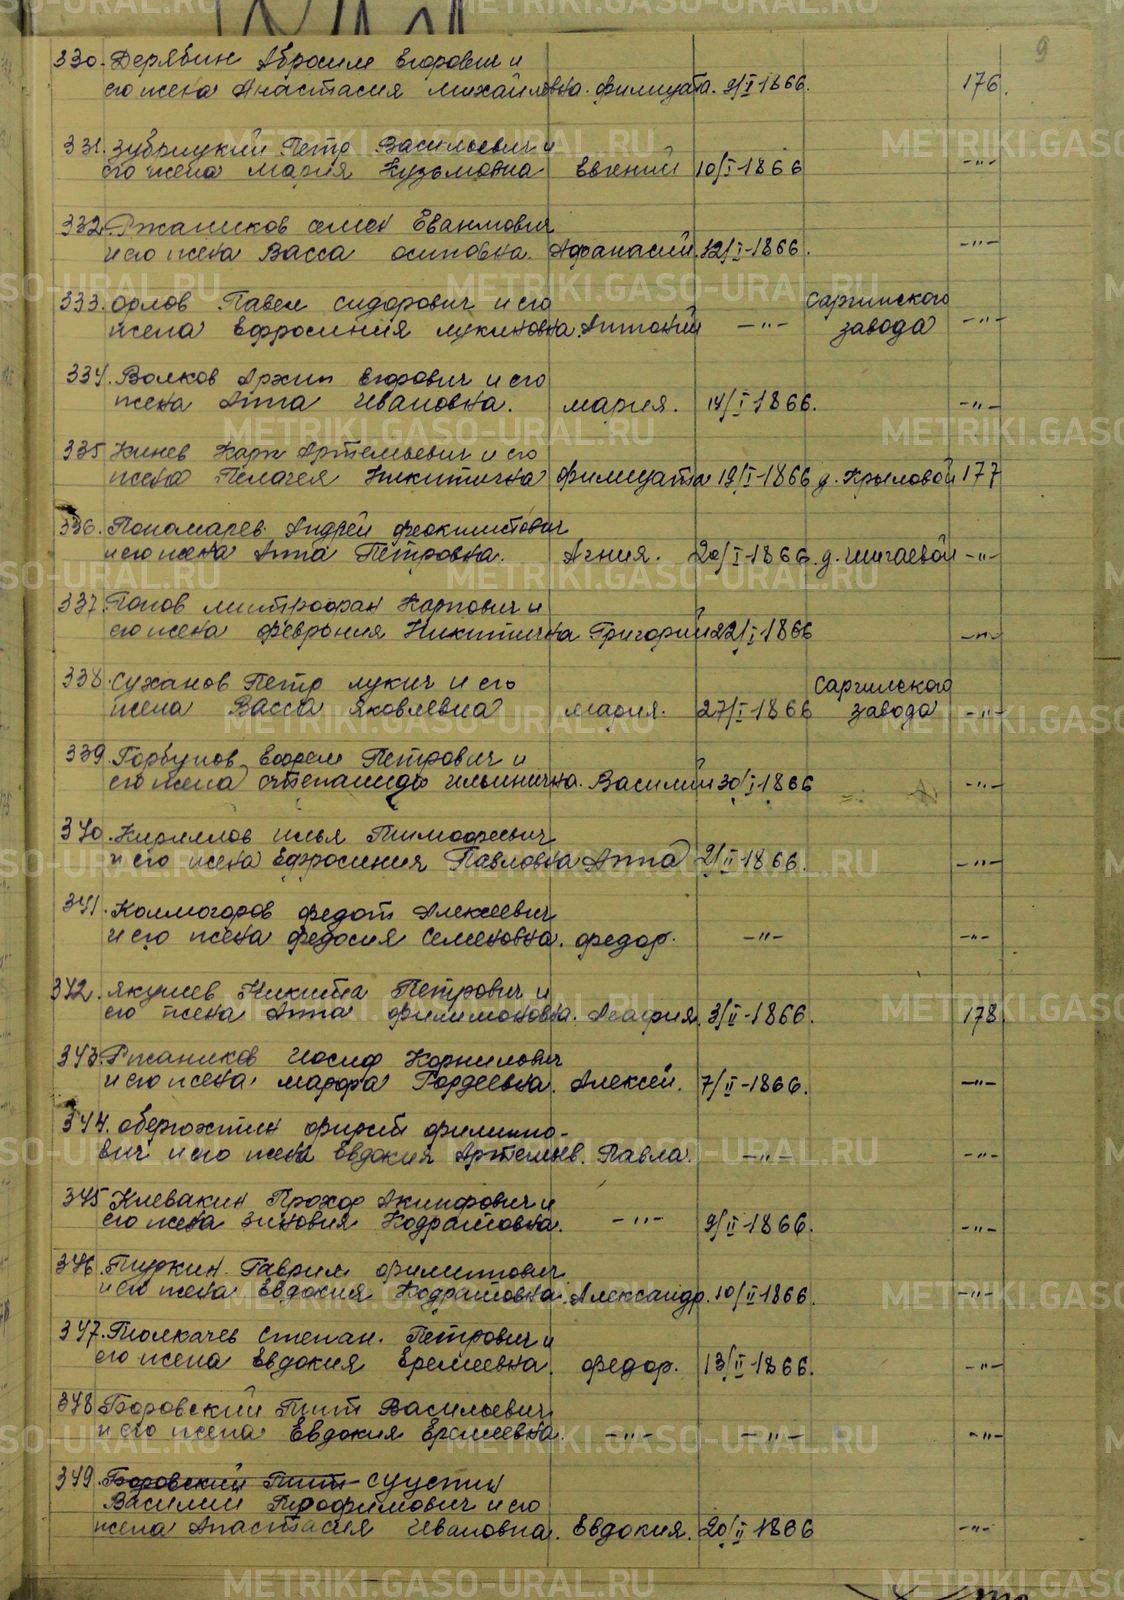 9
330. Дерябин Абросим Егорович и
его жена Анастасия Михайловна. Филицата. 9/I-1866. 176.
331. Зубрицкий Петр Васильевич и
его жена Мария Кузьмовна Евгений 10/I-1866 -"-
332. Ржаников Семен Евдкимович
и его жена Васса Осиповна. Афанасий. 12/I-1866. -"-
333. Орлов Павел Сидорович и его Саргинского
жена Ефросиния Лукиновна. Антоний -"- завода -"-
334. Волков Архип Егорович и его
жена Анна Ивановна. Мария. 14/I-1866. -"-
335 Кинев Карп Артемьевич и его
жена Пелагея Никитична Филицата 19/I-1866 д. Крыловой 177
336. Пономарев Андрей Феоктистович
и его жена Анна Петровна. Агния. 20/I-1866. д. Шигаевой -"-
337. Попов Митрофан Карпович и
его жена Феврония Никитична Григорий 22/I-1866 -"-
338. Суханов Петр Лукич и его Саргинского
жена Васса Яковлевна Мария. 27/I-1866 завода -"-
339. Горбунов Ефрем Петрович и
его жена Степанида Ильинична. Василий 30/I-1866 -"-
340. Кириллов Илья Тимофеевич
и его жена Ефросиния Павловна Анна 2/II-1866. -"-
341. Колмогоров Федот Алексеевич
и его жена Федосия Семеновна. Федор. -"- -"-
342. Якушев Никита Петрович и
его жена Анна Филимоновна. Агафия. 3/II-1866. 178.
343. Ржаников Иосиф Корнилович
и его жена Марфа Гордеевна. Алексей. 7/II-1866. -"-
344. Оберюхтин Фирст Филиппо-
вич и его жена Евдокия Артемьев. Павла. -"- -"-
345 Клевакин Прохор Акинфович и
его жена Зиновия Кодратовна. -"- 9/II-1866. -"-
346. Пудкин Гаврил Филиппович
и его жена Евдокия Кодратовна. Александр. 10/II-1866. -"-
347. Толкачев Степан Петрович и
его жена Евдокия Еремеевна. Федор. 13/II-1866. -"-
348 Боровский Тит Васильевич
и его жена Евдокия Еремеевна. -"- -"- -"-
349. Боровский Тит Суустин
Василий Трофимович и его
жена Анастасия Ивановна. Евдокия. 20/II-1866 -"-
METRIKI.GASO-URAL.RU